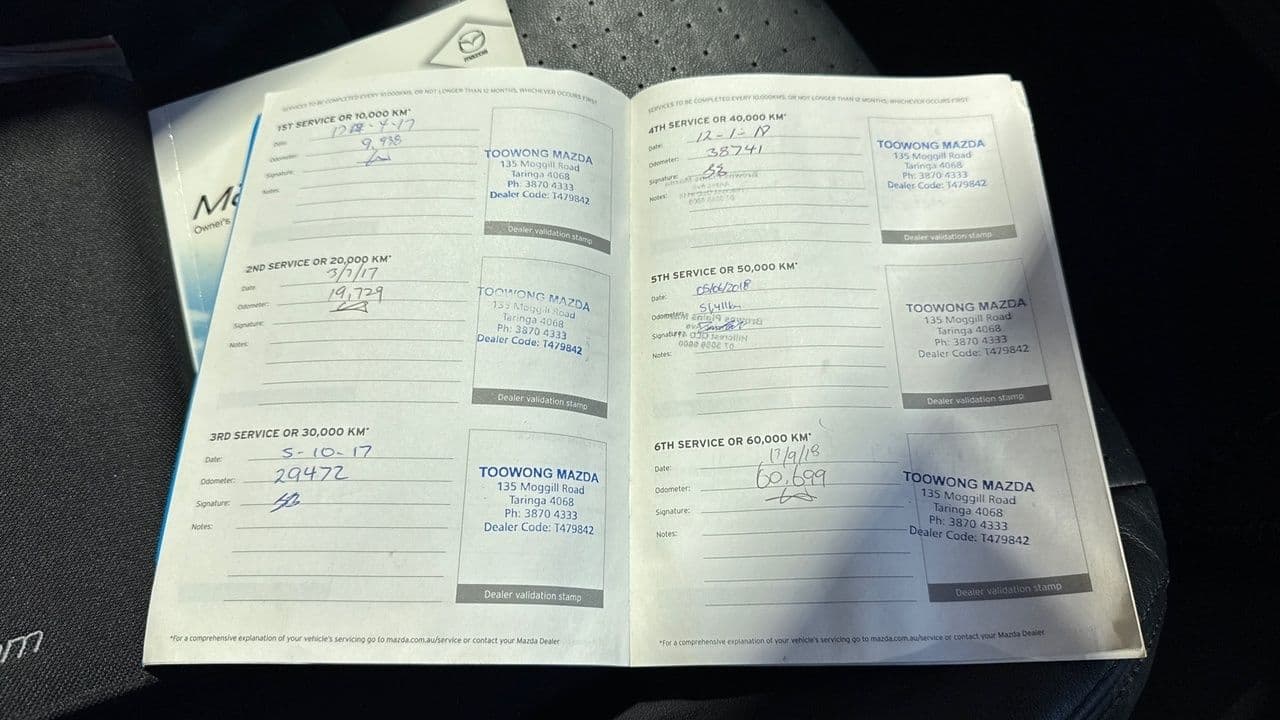 mazda
Owner's
SERVICES TO BE COMPLETED EVERY 10,000KMS, OR NOT LONGER THAN 12 MONTHS, WHICHEVER OCCURS FIRST
1ST SERVICE OR 10,000 KM*
Date:
Odometer: 9,938
Signature:
Notes:
TOOWONG MAZDA
135 Moggill Road
Taringa 4068
Ph: 3870 4333
Dealer Code: T479842
Dealer validation stamp
2ND SERVICE OR 20,000 KM*
Date: 3/7/17
Odometer: 19,729
Signature:
Notes:
TOOWONG MAZDA
135 Moggill Road
Taringa 4068
Ph: 3870 4333
Dealer Code: T479842
Dealer validation stamp
3RD SERVICE OR 30,000 KM*
Date: 5-10-17
Odometer: 29472
Signature:
Notes:
TOOWONG MAZDA
135 Moggill Road
Taringa 4068
Ph: 3870 4333
Dealer Code: T479842
Dealer validation stamp
*For a comprehensive explanation of your vehicle's servicing go to mazda.com.au/service or contact your Mazda Dealer
SERVICES TO BE COMPLETED EVERY 10,000KMS, OR NOT LONGER THAN 12 MONTHS, WHICHEVER OCCURS FIRST
4TH SERVICE OR 40,000 KM*
Date: 12-1-18
Odometer: 38741
Signature:
Notes:
TOOWONG MAZDA
135 Moggill Road
Taringa 4068
Ph: 3870 4333
Dealer Code: T479842
Dealer validation stamp
5TH SERVICE OR 50,000 KM*
Date: 05/06/2018
Odometer:
Signature:
Notes:
TOOWONG MAZDA
135 Moggill Road
Taringa 4068
Ph: 3870 4333
Dealer Code: T479842
Dealer validation stamp
6TH SERVICE OR 60,000 KM*
Date: 17/9/18
Odometer: 60,699
Signature:
Notes:
TOOWONG MAZDA
135 Moggill Road
Taringa 4068
Ph: 3870 4333
Dealer Code: T479842
Dealer validation stamp
*For a comprehensive explanation of your vehicle's servicing go to mazda.com.au/service or contact your Mazda Dealer